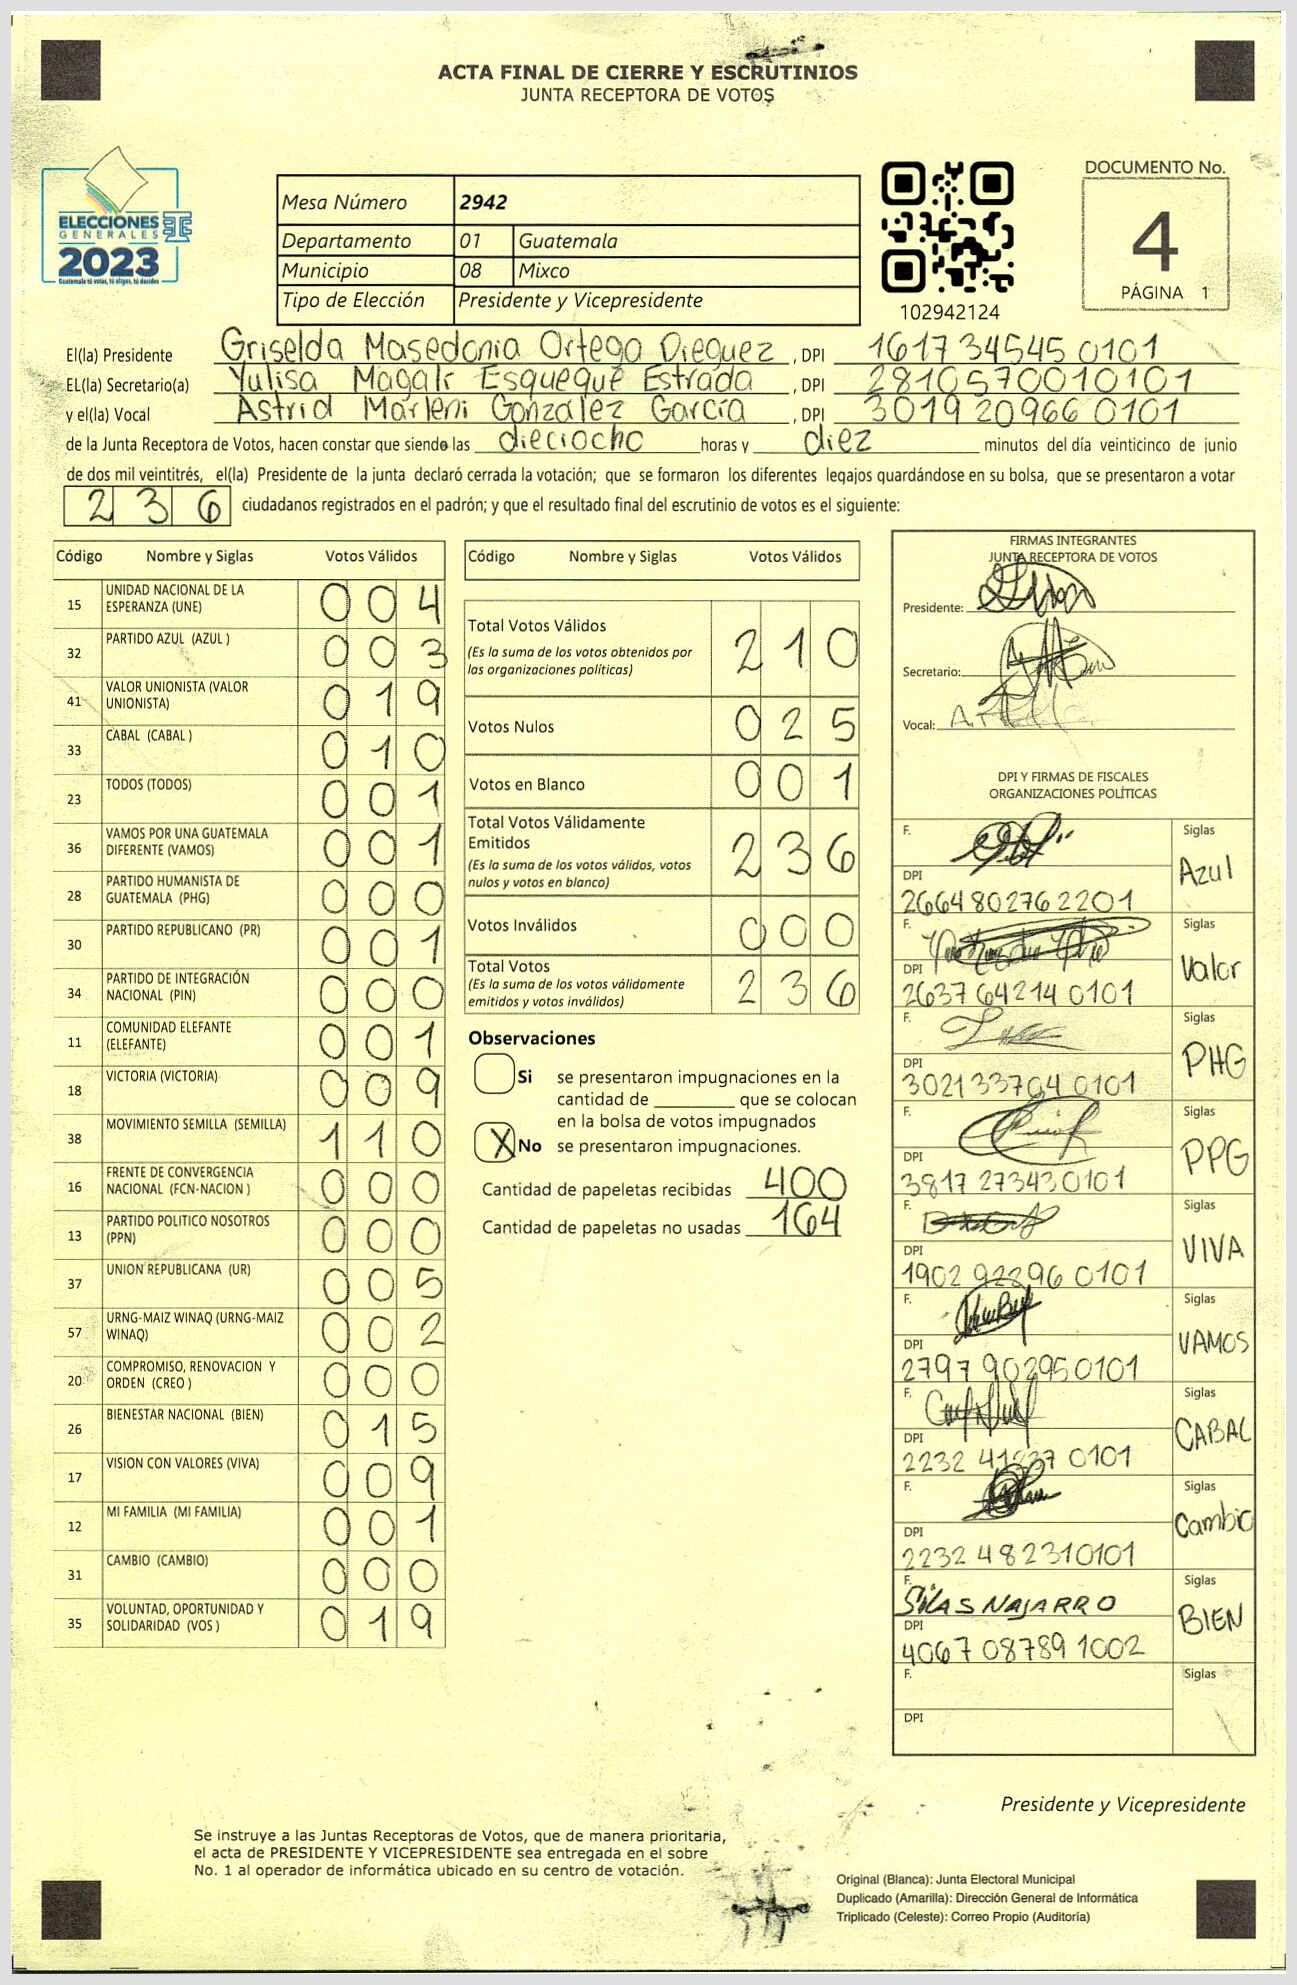 ACTA FINAL DE CIERRE Y ESCRUTINIOS
JUNTA RECEPTORA DE VOTOS
ELECCIONES
GENERALES
2023
Guatemala tú votas, tú eliges, tú decides
Mesa Número 2942
Departamento 01 Guatemala
Municipio 08 Mixco
Tipo de Elección Presidente y Vicepresidente
102942124
DOCUMENTO No.
4
PÁGINA 1
El(la) Presidente Griselda Masedonia Ortega Dieguez, DPI 1617 34545 0101
EL(la) Secretario(a) Yulisa Magalí Esqueque Estrada, DPI 2810570010101
y el(la) Vocal Astrid Marleni González García, DPI 3019 20966 0101
de la Junta Receptora de Votos, hacen constar que siendo las dieciocho horas y diez minutos del día veinticinco de junio
de dos mil veintitrés, el(la) Presidente de la junta declaró cerrada la votación; que se formaron los diferentes legajos guardándose en su bolsa, que se presentaron a votar
236 ciudadanos registrados en el padrón; y que el resultado final del escrutinio de votos es el siguiente:
Código Nombre y Siglas Votos Válidos
15 UNIDAD NACIONAL DE LA ESPERANZA (UNE) 004
32 PARTIDO AZUL (AZUL ) 003
41 VALOR UNIONISTA (VALOR UNIONISTA) 019
33 CABAL (CABAL ) 010
23 TODOS (TODOS) 001
36 VAMOS POR UNA GUATEMALA DIFERENTE (VAMOS) 001
28 PARTIDO HUMANISTA DE GUATEMALA (PHG) 000
30 PARTIDO REPUBLICANO (PR) 001
34 PARTIDO DE INTEGRACIÓN NACIONAL (PIN) 000
11 COMUNIDAD ELEFANTE (ELEFANTE) 001
18 VICTORIA (VICTORIA) 009
38 MOVIMIENTO SEMILLA (SEMILLA) 110
16 FRENTE DE CONVERGENCIA NACIONAL (FCN-NACION ) 000
13 PARTIDO POLITICO NOSOTROS (PPN) 000
37 UNION REPUBLICANA (UR) 005
57 URNG-MAIZ WINAQ (URNG-MAIZ WINAQ) 002
20 COMPROMISO, RENOVACION Y ORDEN (CREO ) 000
26 BIENESTAR NACIONAL (BIEN) 015
17 VISION CON VALORES (VIVA) 009
12 MI FAMILIA (MI FAMILIA) 001
31 CAMBIO (CAMBIO) 000
35 VOLUNTAD, OPORTUNIDAD Y SOLIDARIDAD (VOS ) 019
Código Nombre y Siglas Votos Válidos
Total Votos Válidos 210
(Es la suma de los votos obtenidos por
las organizaciones políticas)
Votos Nulos 025
Votos en Blanco 001
Total Votos Válidamente
Emitidos 236
(Es la suma de los votos válidos, votos
nulos y votos en blanco)
Votos Inválidos 000
Total Votos 236
(Es la suma de los votos válidamente
emitidos y votos inválidos)
Observaciones
Si se presentaron impugnaciones en la
cantidad de ________ que se colocan
en la bolsa de votos impugnados
X No se presentaron impugnaciones.
Cantidad de papeletas recibidas 400
Cantidad de papeletas no usadas 164
FIRMAS INTEGRANTES
JUNTA RECEPTORA DE VOTOS
Presidente:
Secretario:
Vocal:
DPI Y FIRMAS DE FISCALES
ORGANIZACIONES POLÍTICAS
F. Siglas
DPI Azul
2664 80276 2201
F. Siglas
DPI Valor
2637 64214 0101
F. Siglas
DPI PHG
3021 33704 0101
F. Siglas
DPI PPG
3817 27343 0101
F. Siglas
DPI VIVA
1902 92896 0101
F. Siglas
DPI VAMOS
2797 90295 0101
F. Siglas
DPI CABAL
2232 0101
F. Siglas
DPI Cambio
2232 48231 0101
F. Silas NAJARRO Siglas
DPI BIEN
4067 08789 1002
F. Siglas
DPI
Presidente y Vicepresidente
Se instruye a las Juntas Receptoras de Votos, que de manera prioritaria,
el acta de PRESIDENTE Y VICEPRESIDENTE sea entregada en el sobre
No. 1 al operador de informática ubicado en su centro de votación.
Original (Blanca): Junta Electoral Municipal
Duplicado (Amarilla): Dirección General de Informática
Triplicado (Celeste): Correo Propio (Auditoría)